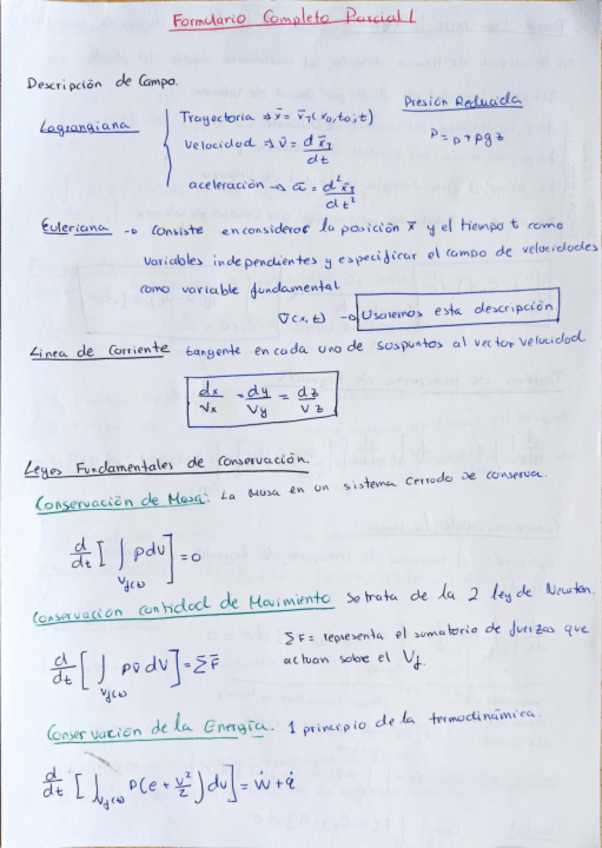 Formulario Completo Parcial 1
Descripción de Campo.
Presión Reducida
P = p + ρgz
Lagrangiana
Trayectoria ⇒ x̄ = x̄_T(x_0, t_0; t)
Velocidad ⇒ v̄ = dx̄_T/dt
aceleración → ā = d²x̄_T/dt²
Euleriana → Consiste en considerar la posición x̄ y el tiempo t como
variables independientes y especificar el campo de velocidades
como variable fundamental
v̄(x, t) → Usaremos esta descripción
Linea de Corriente tangente en cada uno de sus puntos al vector velocidad
dx/Vx = dy/Vy = dz/Vz
Leyes Fundamentales de conservación.
Conservación de Masa: La masa en un sistema Cerrado se conserva.
d/dt [ ∫_Vf(t) ρdV ] = 0
Conservación cantidad de Movimiento se trata de la 2 ley de Newton.
ΣF = representa el sumatorio de fuerzas que
actuan sobre el Vf.
d/dt [ ∫_Vf(t) ρv̄ dV ] = ΣF̄
Conservación de la Energía. 1 principio de la termodinámica.
d/dt [ ∫_Vf(t) ρ(e + v²/2) dV ] = Ẇ + q̇